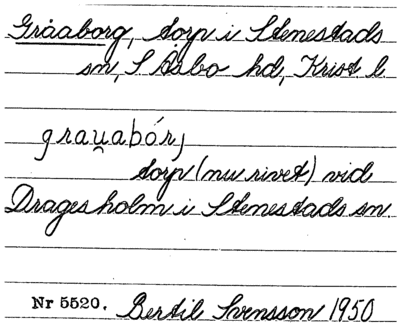 Gråaborg, torp i Stenestads
sn, S. Åsbo hd, Krist l
grau̯abórj
torp (nu rivet) vid
Dragesholm i Stenestads sn
Nr 5520. Bertil Svensson 1950